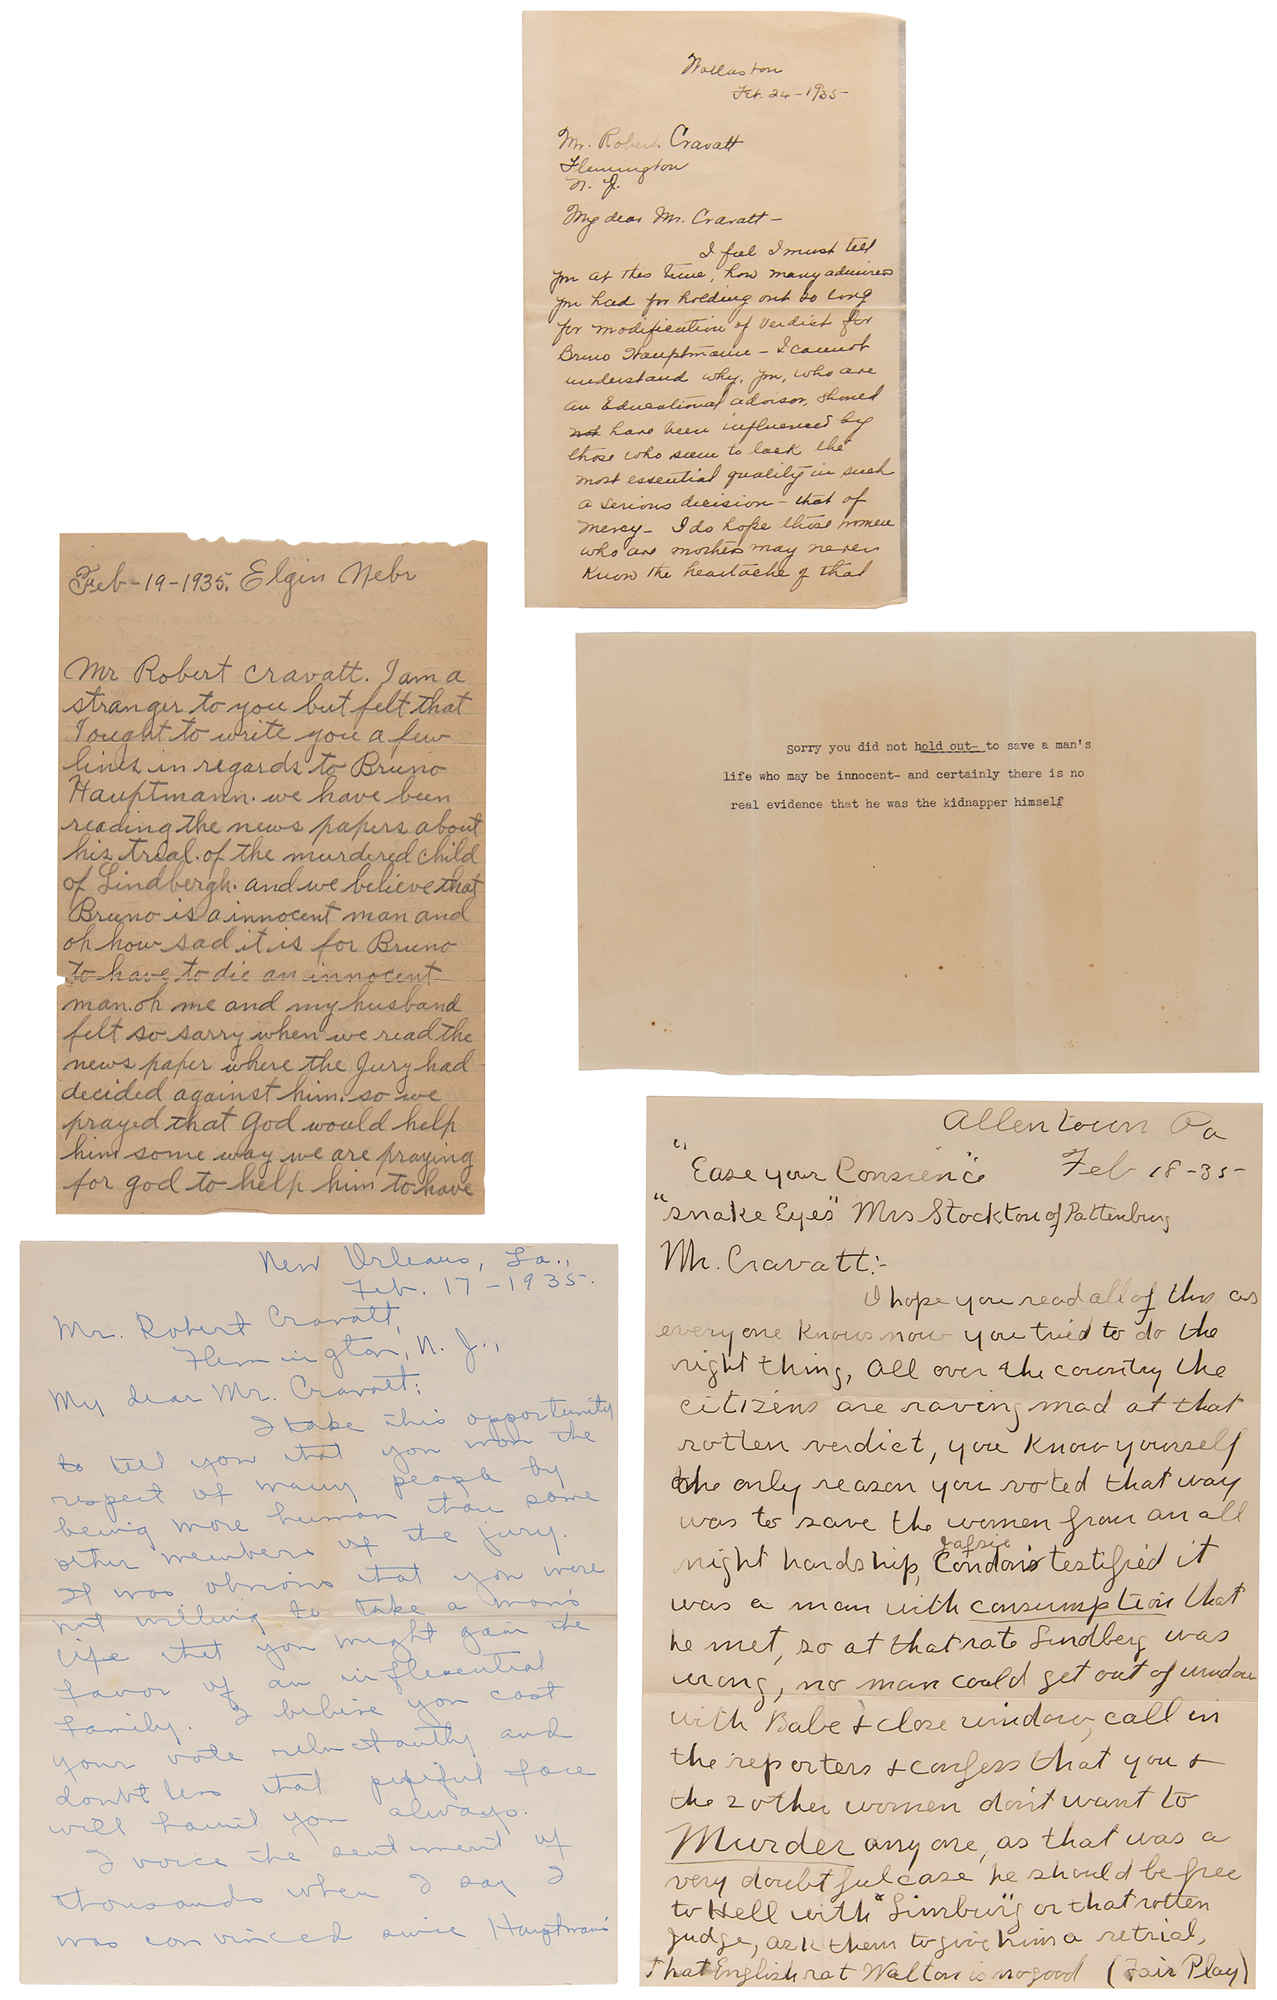 Wollaston
Feb. 24-1935-
Mr. Robert Cravatt
Flemington
N. J.
My dear Mr. Cravatt-
I feel I must tell
you at this time, how many admirers
you had for holding out so long
for modification of verdict for
Bruno Hauptmann - I cannot
understand why, you, who are
an Educational advisor, should
not have been influenced by
those who seem to lack the
most essential quality in such
a serious decision - that of
Mercy - I do hope those women
who are mothers may never
know the heartache of that
Feb-19-1935. Elgin Nebr
Mr Robert Cravatt. I am a
stranger to you but felt that
I ought to write you a few
lines in regards to Bruno
Hauptmann. we have been
reading the news papers about
his trial. of the murdered child
of Lindbergh. and we believe that
Bruno is a innocent man and
oh how sad it is for Bruno
to have to die an innocent
man. oh me and my husband
felt so sarry when we read the
news paper where the Jury had
decided against him. so we
prayed that God would help
him some way we are praying
for god to help him to have
sorry you did not hold out- to save a man's
life who may be innocent- and certainly there is no
real evidence that he was the kidnapper himself
New Orleans, La.,
Feb. 17-1935.
Mr. Robert Cravatt,
Flemington, N. J.,
My dear Mr. Cravatt:
I take this opportunity
to tell you that you won the
respect of many people by
being more human than some
other members of the jury.
It was obvious that you were
not willing to take a man's
life that you might gain the
favor of an influential
family. I believe you cast
your vote reluctantly and
doubtless that pitiful face
will haunt you always.
I voice the sentiment of
thousands when I say I
was convinced since Hauptman's
Allentown Pa
"Ease your Conscience" Feb 18-35-
"Snake Eyes" Mrs Stockton of Pattenburg
Mr. Cravatt:-
I hope you read all of this as
everyone knows now you tried to do the
right thing, all over the country the
citizens are raving mad at that
rotten verdict, you know yourself
the only reason you voted that way
was to save the women from an all
Jafsie
night hardship, Condon's testified it
was a man with consumption that
he met, so at that rate Lindberg was
wrong, no man could get out of window
with Babe & close window, call in
the reporters & confess that you &
the 2 other women don't want to
Murder anyone, as that was a
very doubtful case he should be free
to Hell with "Limburg" or that rotten
Judge, ask them to give him a retrial,
that English rat Walton is no good (Fair Play)